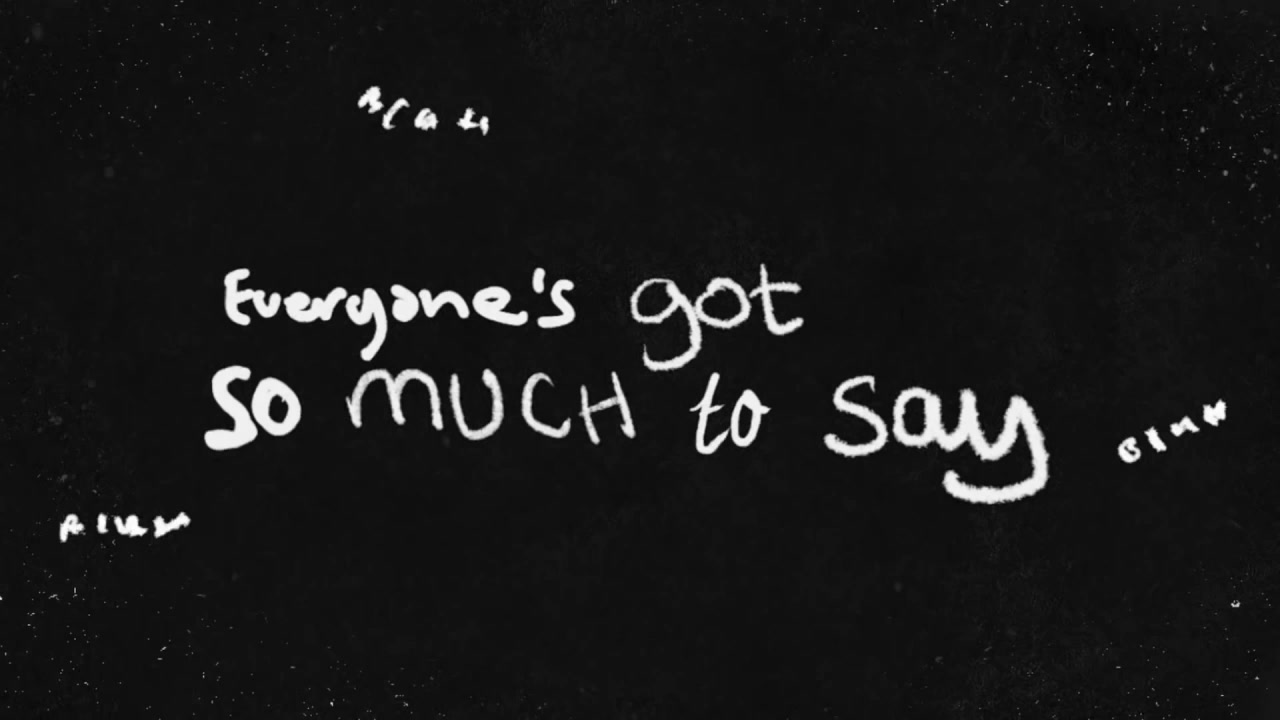 Everyone's got
so MUCH to say